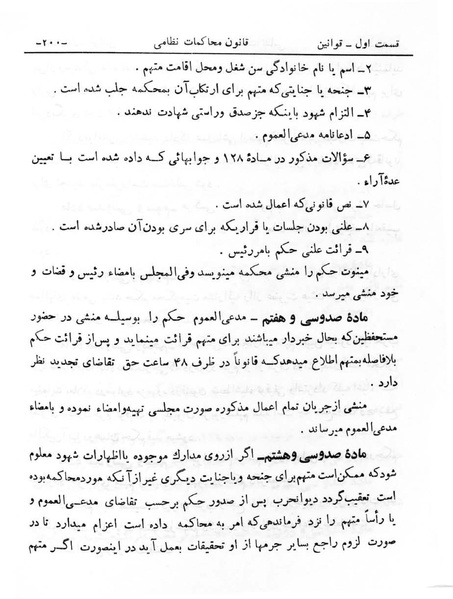 قسمت اول ـ قوانین قانون محاکمات نظامی -۲۰۰-
۲ـ اسم یا نام خانوادگی سن شغل ومحل اقامت متهم .
۳ـ جنحه یا جنایتی‌که متهم برای ارتکاب‌آن بمحکمه جلب شده است .
۴ـ التزام شهود باینکه جزصدق وراستی شهادت ندهند .
۵ـ ادعانامه مدعی‌العموم .
۶ـ سؤالات مذکور در مادهٔ ۱۲۸ و جوابهائی که داده شده است با تعیین
عدهٔ آراء .
۷ـ نص قانونی‌که اعمال شده است .
۸ـ علنی بودن جلسات یا قراریکه برای سری بودن‌آن صادرشده است .
۹ـ قرائت علنی حکم بامررئیس .
مینوت حکم را منشی محکمه مینویسد وفی‌المجلس بامضاء رئیس و قضات و
خود منشی میرسد .
مادهٔ صدوسی و هفتم ـ مدعی‌العموم حکم را بوسیله منشی در حضور
مستحفظین‌که بحال خبردار میباشند برای متهم قرائت مینماید و پس‌از قرائت حکم
بلافاصله بمتهم اطلاع میدهدکه قانوناً در ظرف ۴۸ ساعت حق تقاضای تجدید نظر
دارد .
منشی ازجریان تمام اعمال مذکوره صورت مجلس تهیه‌وامضاء نموده و بامضاء
مدعی‌العموم میرساند .
مادهٔ صدوسی وهشتم ـ اگر ازروی مدارك موجوده یااظهارات شهود معلوم
شودکه ممکن‌است متهم‌برای جنحه ویاجنایت دیگری غیرازآنکه موردمحاکمه‌بوده
است تعقیب‌گردد دیوانحرب پس از صدور حکم برحسب تقاضای مدعی‌العموم و
یا رأساً متهم را نزد فرماندهی‌که امر به محاکمه داده است اعزام میدارد تا در
صورت لزوم راجع بسایر جرمها از او تحقیقات بعمل آید در اینصورت اگر متهم